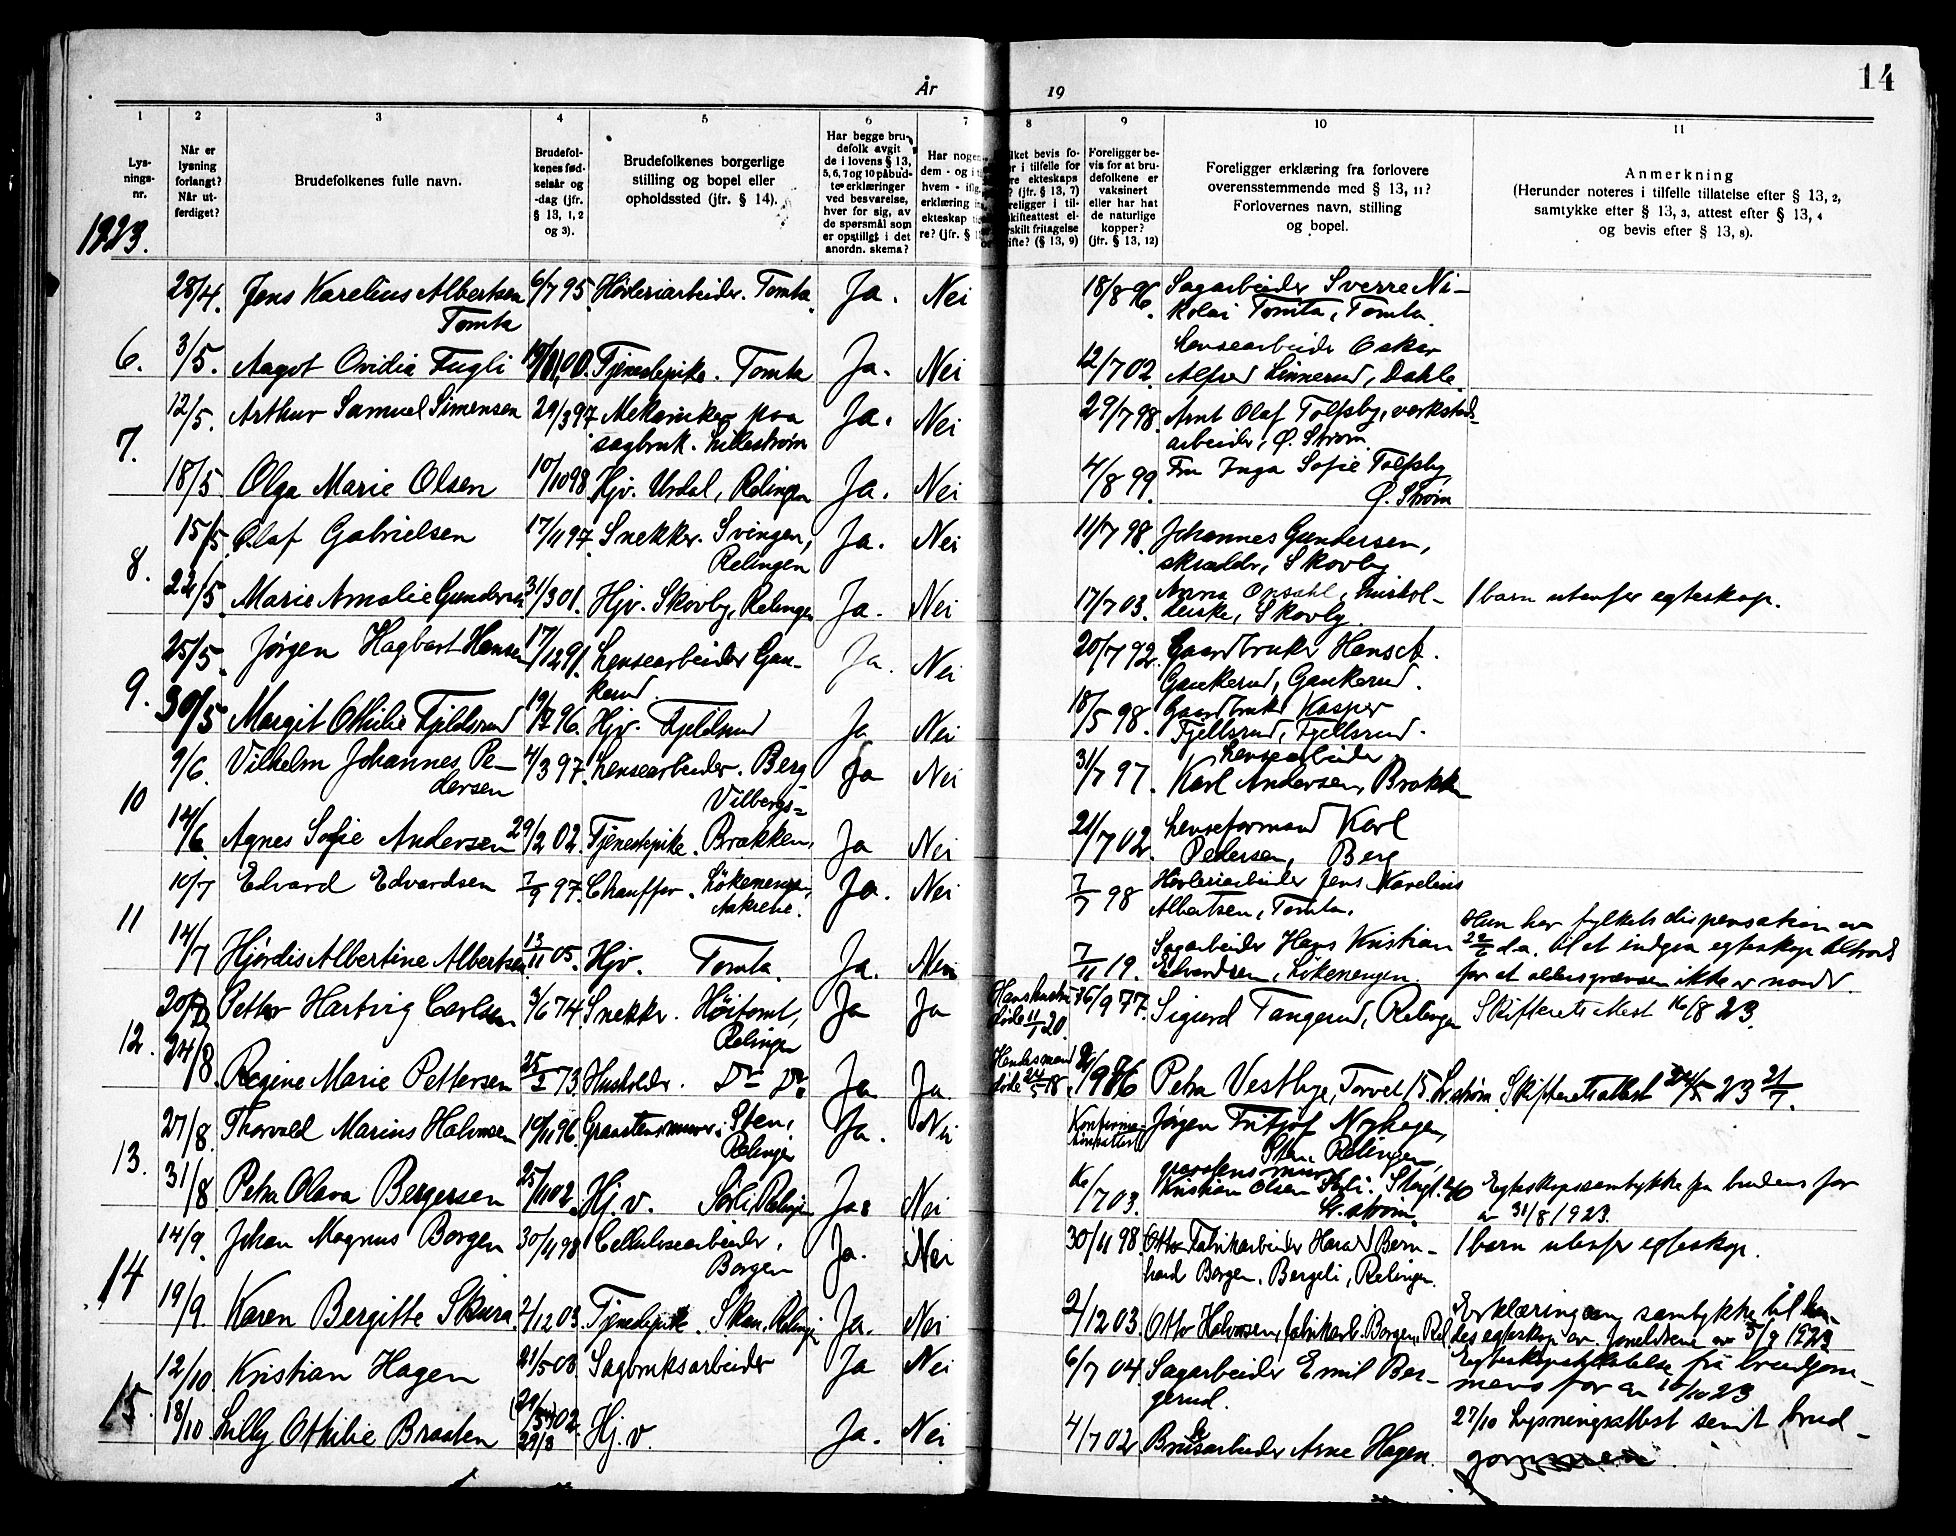 År 19
14
1 2 3 4 5 6 7 8 9 10 11
Lys-
nings-
nr.
Når er
lysning
forlangt?
Når ut-
ferdiget?
Brudefolkenes fulle navn.
Brudefol-
kenes fød-
selsår og
-dag (jfr.
§ 13, 1, 2
og 3).
Brudefolkenes borgerlige
stilling og bopel eller
opholdssted (jfr. § 14).
Har begge bru-
defolk avgit
de i lovens § 13,
5, 6, 7 og 10 påbud-
te erklæringer
ved besvarelse,
hver for sig, av
de spørsmål som
er opstilligt i det
anordn. skema?
Har nogen
dem - og i
hvem - ifl.
erklæring
ekteskap
re? (jfr. §
lket bevis fo-
r i tilfelle for
re ekteskaps
? (jfr. § 13, 7)
religger i til-
skifteattest el-
rskilt fritagelse
ifte? (§ 13, 9)
Foreligger be-
vis for at bru-
defolkene er
vaksinert
eller har hat
de naturlige
kopper?
(jfr. § 13, 12)
Foreligger erklæring fra forlovere
overensstemmende med § 13, 11?
Forlovernes navn, stilling
og bopel.
Anmerkning
(Herunder noteres i tilfelle tillatelse efter § 13, 2,
samtykke efter § 13, 3, attest efter § 13, 4
og bevis efter § 13, 8).
1923.
28/4. Jens Karelius Albertsen 6/7 95. Høvleriarbeider. Tomta. Ja. Nei 18/8 96. Sagarbeider Sverre Ni-
Tomta kolai Tomta, Tomta.
6. 3/5. Aagot Ovidia Fugli 00. Tjenestepike. Tomta Ja. Nei 12/7 02. Lensearbeider Oskar
Alfred Linnerud, Dahle.
7. 12/5. Arthur Samuel Simensen 29/3 97. Mekaniker paa Ja. Nei 29/7 98. Arnt Olaf Tolfsby, verksteds-
sagbruk. Lillestrøm arbeider, Ø. Strøm.
18/5 Olga Marie Olsen 10/10 98 Hjv. Urdal, Relingen Ja. Nei 4/8 99. Fru Inga Sofie Tolfsby
Ø. Strøm
8. 15/5. Olaf Gabrielsen 17/11 97. Snekker. Svingen, Ja. Nei 11/7 98. Johannes Gundersen,
Relingen skrædder, Skovby
22/5. Marie Amalie Gundersen 31/3 01. Hjv. Skovby, Relingen Ja. Nei 17/7 03. Anna Opsahl, hushol-
derske, Skovby. 1 barn utenfor egteskap.
9. 25/5. Jørgen Hagbart Hansen 17/12 91. Lensearbeider Gau- Ja. Nei 20/7 92. Gaardbruker Hans A.
kerud. Gaukerud, Gaukerud.
30/5 Margit Othilie Fjeldsrud 96. Hjv. Fjeldsrud Ja Nei 18/5 98. Gaardbruker Kasper
Fjellsrud, Fjellsrud.
10 9/6. Vilhelm Johannes Pe- 4/3 97. Lensearbeider. Berg Ja Nei 31/7 97. Lensearbeider
dersen Karl Andersen, Brakken
14/6. Agnes Sofie Andersen 29/2 02. Tjenestepike. Vilbergs=
Brakken. Ja Nei 21/7 02. Lenseformand Karl
Pedersen, Berg
11 10/7 Edvard Edvardsen 7/9 97. Chauffør. Løkenengen, Ja. Nei 7/7 98 Høvleriarbeider Jens Karelius
Albertsen, Tomta.
14/7 Hjørdis Albertine Albertsen 13/11 05. Hjv. Tomta. Ja. Nei 7/11 19. Sagarbeider Hans Kristian
Edvardsen, Løkenengen. Hun har fylkets dispensation av
d.a. til at indgaa egteskap tiltrods
for at aldersgrænsen ikke er naadd.
12. 20/ Petter Hartvig Carlsen 3/6 74 Snekker. Høitomt, Ja Ja Hans hustru
døde 11/ 20. 9 77. Sigurd Tangerud, Relingen Skifteretsattest 16/8 23.
Relingen
24/8. Regine Marie Pettersen 25/2 73. Husholder. Do Do. Ja Ja. Hendes mand
døde 18. 1986 Petra Vestbye, Torvet 15. L.strøm. Skifteretsattest 23
13. 27/8. Thorvald Marius Halvorsen 19/11 96. Graastensmurer, Sten, Ja. Nei Konfirma-
tionsattest Jørgen Fritjof Nyhagen,
Relingen Sten. Relingen,
graastensmurer
31/8. Petra Olava Bergersen 25/11 02. Hj.v. Sørli, Relingen Ja. Nei /7 03. Kristian Olsen
L.strøm. Egteskapssamtykke fra brudens far
av 31/8 1923.
14 14/9. Johan Magnus Borgen 30/11 98 Cellulosearbeider, Ja. Nei 30/11 98. Fabrikarbeider Harald Bern-
Borgen hard Borgen. Bergeli, Relingen. 1 barn utenfor egteskap.
19/9. Karen Bergitte Skara. 2/12 03. Tjenestepike. Relingen Ja. Nei 2/12 03. Otto Halvorsen, fabrikarb. Borgen, Rel. Erklæring om samtykke til hen-
des egteskap av forældrene av 5/9 1923
15. 12/10. Kristian Hagen 21/5 03. Sagbruksarbeider Ja Nei 6/7 04. Sagarbeider Emil Ber-
gerud. Egteskapstillatelse fra brudgom-
mens far av 10/10 23
18/10 Lilly Othilie Braaten 02. Hj.v. Ja. Nei 4/7 02. Brusarbeider Arne Hagen. 27/10 Lysningsattest sendt brud-
29/8 gommen.